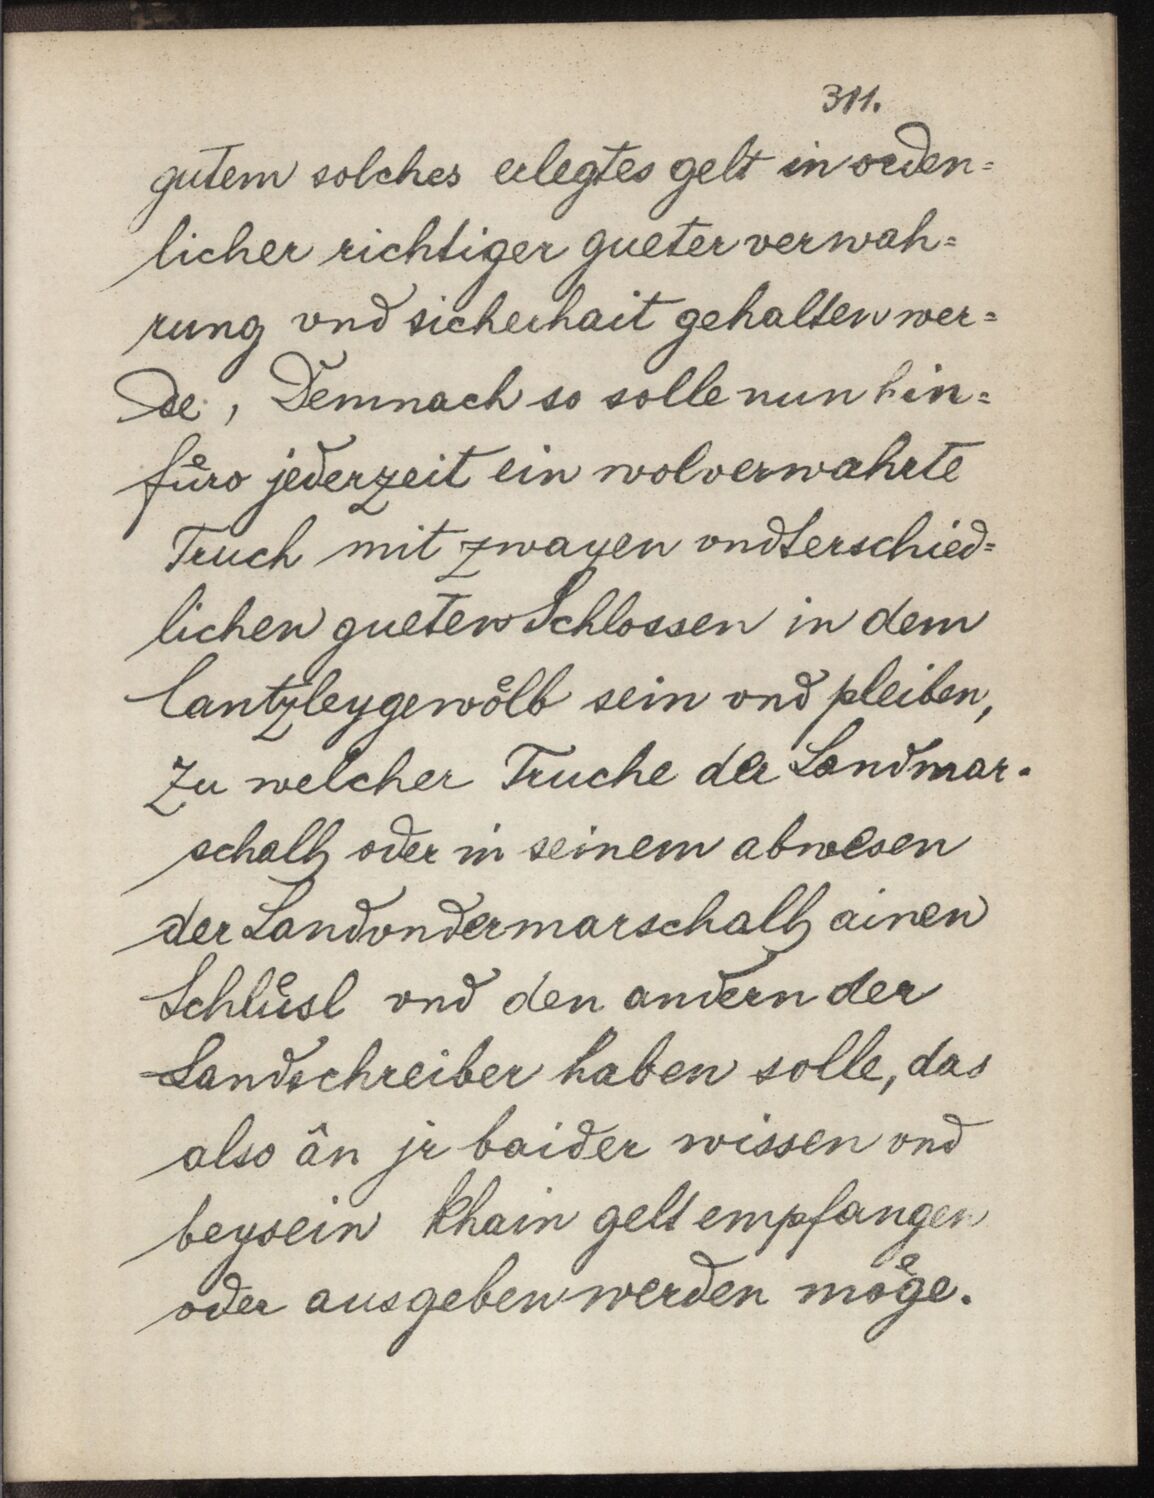 311.
gutem solches erlegtes gelt in orden=
licher richtiger gueter verwah=
rung vnd sicherhait gehalten wer=
de, Demnach so solle nun hin=
fuͤro jederzeit ein wolverwahrte
Truch mit zwayen vndterschied=
lichen gueten Schlossen in dem
Cantzleygewoͤlb sein vnd pleiben,
Zu welcher Truche der Landmar=
schalh oder in seinem abwesen
der Landvndermarschalh ainen
Schluͤsl vnd den andern der
Landschreiber haben solle, das
also ân jr baider wissen vnd
beysein khain gelt empfangen
oder ausgeben werden moͤge.